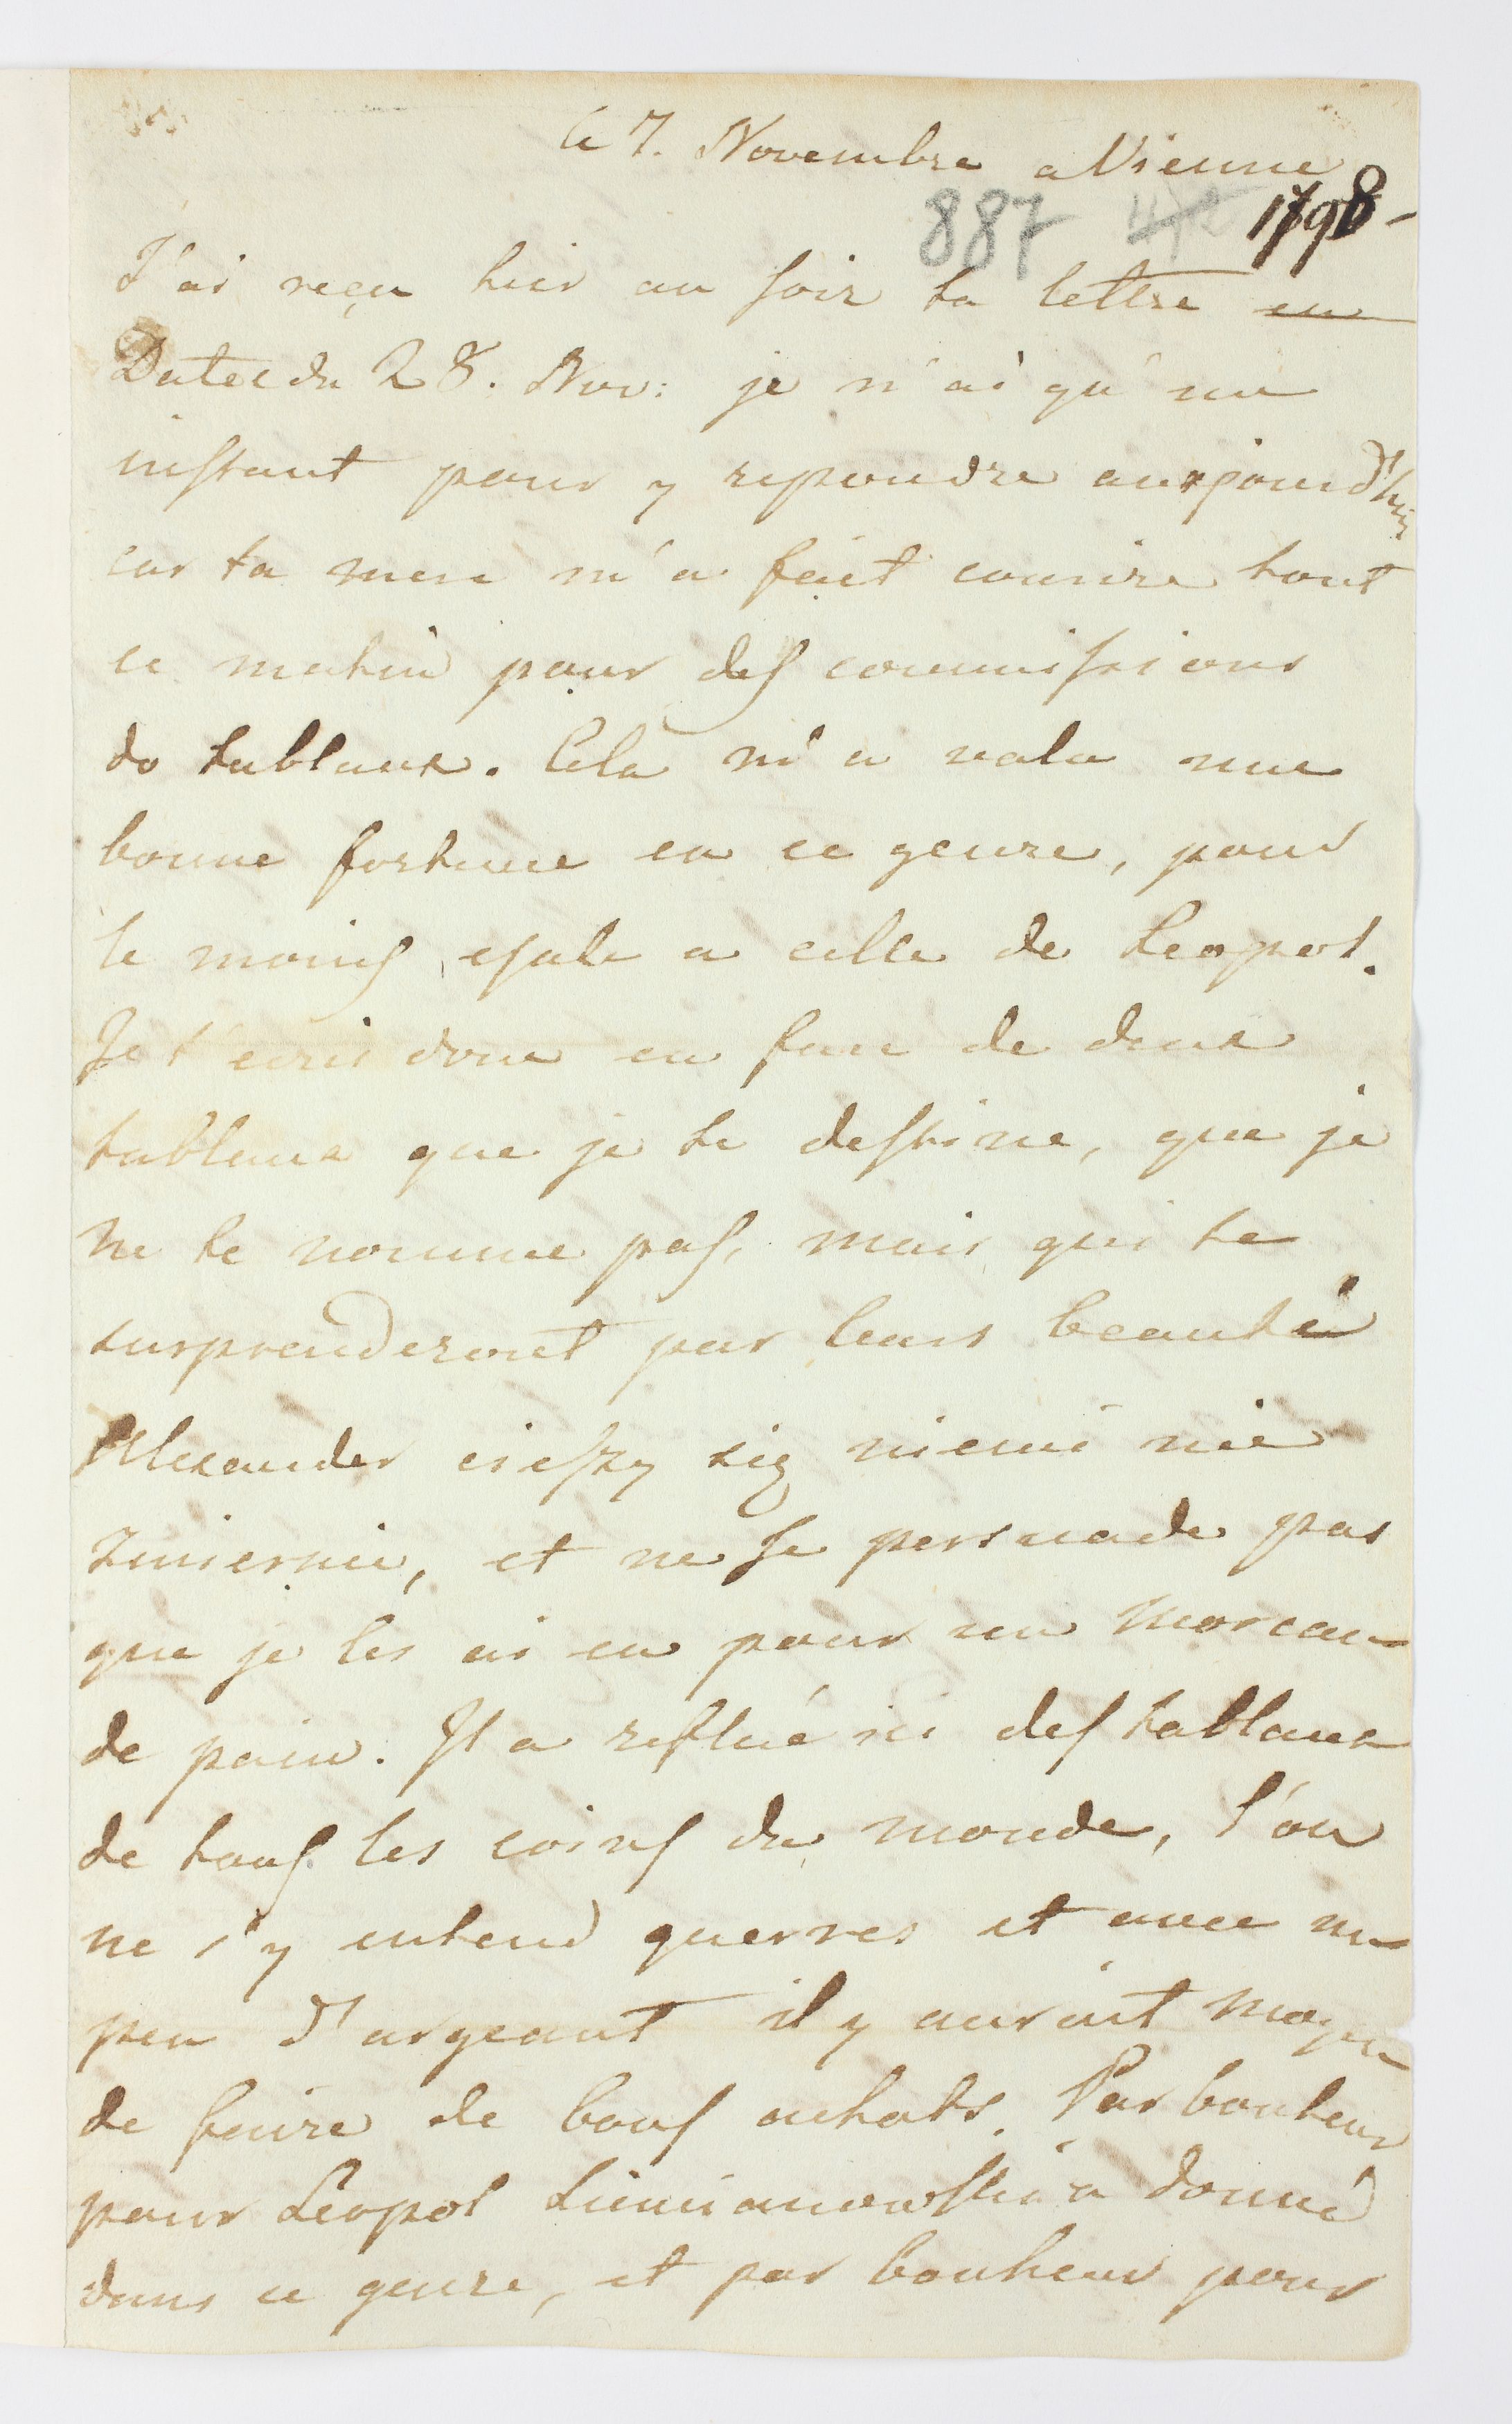 le 7. Novembre a Vienne
887 42 1798 -
J'ai reçu hier au soir ta lettre en
Datee du 28. Nov: je n'ai qu'un
instant pour y repondre aurjourd'hui
car ta mere m'a fait courire tout
ce matin pour des commissions
do tablaux. Cela m'a valu une
bonne fortune en ce genre, pour
le moins egale a celle de Leopol.
Je t'ecris donc en face de deux
tableaux que je te destine, que je
ne te nomme pas, mais qui te
surprenderont par leurs beauté
Alexander cieszy się niemi nie
zmiernie, et ne se persuade pas
que je les ai eu pour un morceau
de pain. Il a reflué ici des tablaux
de tous les coins du monde, l'on
ne s'y entend guerres et avec un
peu d'argeant il y auroit moyen
de faire de bons achats. Par bonheur
pour Léopol a donné
dans ce genre, et par bonheur pour